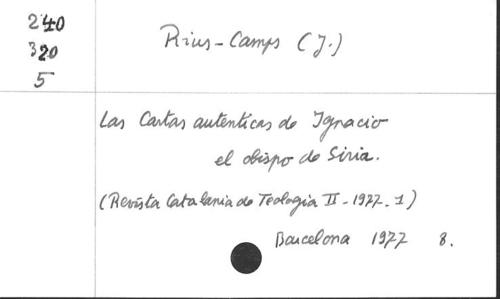 240
320
5
Rius-Camps (J.)
Las Cartas autenticas de Ignacio
el obispo de Siria.
(Revista Catalania de Teologia II - 1977. 1)
Barcelona 1977 8.